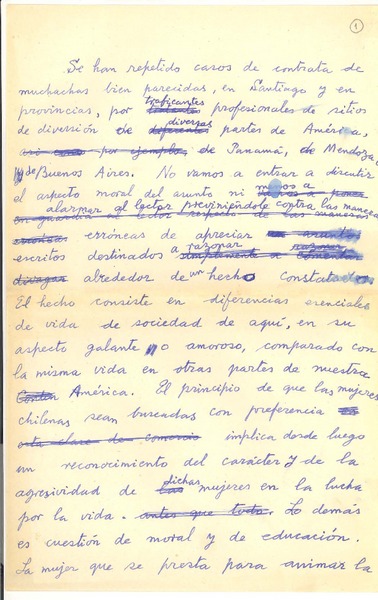 1
Se han repetido casos de contrata de
muchachas bien parecidas, en Santiago y en
provincias, por traficantes profesionales de sitios
de diversión de diversas partes de América,
de Panamá, de Mendoza,
y de Buenos Aires. No vamos a entrar a discutir
el aspecto moral del asunto ni vamos a
alarmar al lector previniéndole contra las maneras
erróneas de apreciar
escritos destinados a razonar
alrededor de un hecho constatado.
El hecho consiste en diferencias esenciales
de vida de sociedad de aquí, en su
aspecto galante o amoroso, comparado con
la misma vida en otras partes de nuestra
América. El principio de que las mujeres
chilenas sean buscadas con preferencia
esta clase de comercio implica desde luego
un reconocimiento del carácter y de la
agresividad de dichas mujeres en la lucha
por la vida. antes que todo. Lo demás
es cuestión de moral y de educación.
La mujer que se presta para animar la